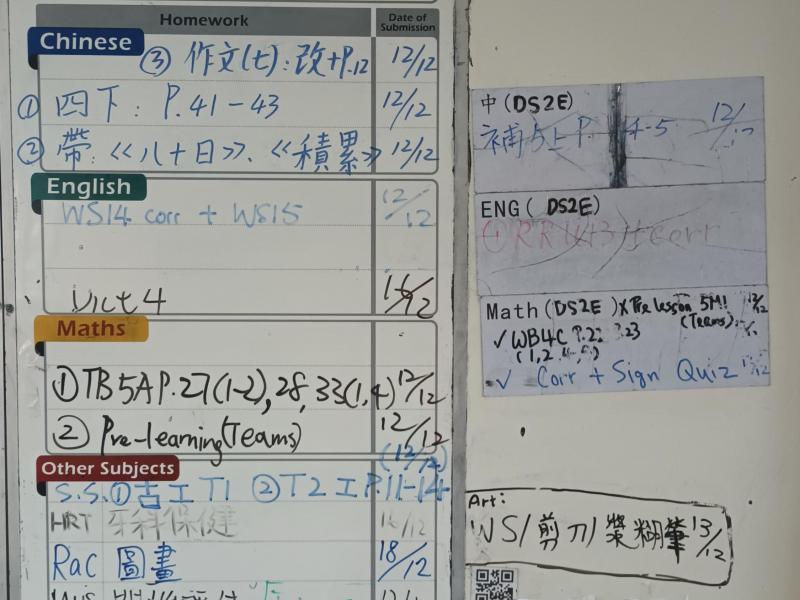 Homework
Date of Submission
Chinese
③ 作文(七): 改+P.12 12/12
① 四下: P.41-43 12/12
② 帶: 《八十日》、《積累》 12/12
English
WS14 corr + WS15 12/12
Dict 4 16/12
Maths
① TB 5A P.27(1-2), 28, 33(1,4) 12/12
② Pre-learning (Teams) 12/12
Other Subjects
(12/12)
S.S. ① 古工T1 ② T2 工P.11-14
HRT 牙科保健 16/12
RaC 圖畫 18/12
中(DS2E)
補5上P. 4-5 12/12
ENG( DS2E)
① RR + corr
Math(DS2E ) X Pre lesson 5M! 12/12
(Teams)
✓ WB4C P.22 P.23
✓ Corr + Sign Quiz 12/12
Art:
WS/剪刀/漿糊筆 13/12